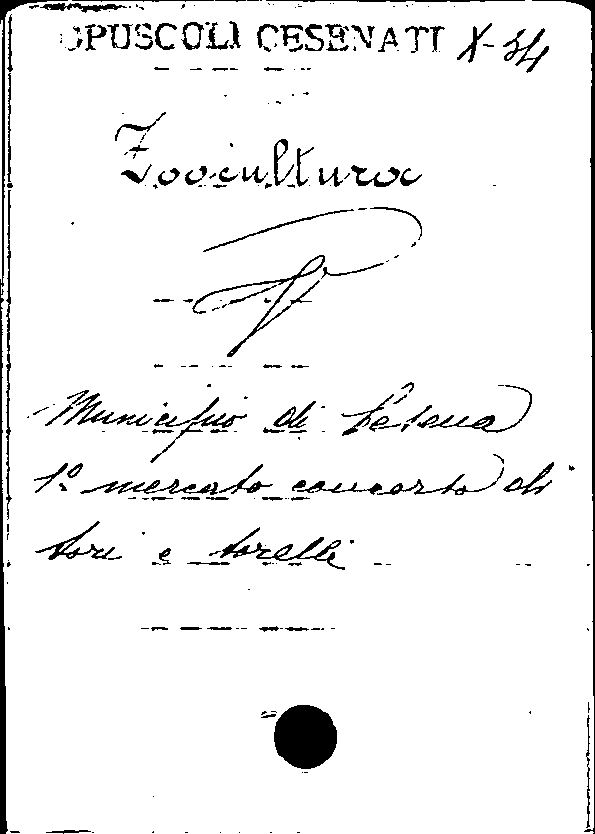 OPUSCOLI CESENATI X-54
Zooicultura
Municipio di Cesena
1º mercato concorso di
tori e torelli